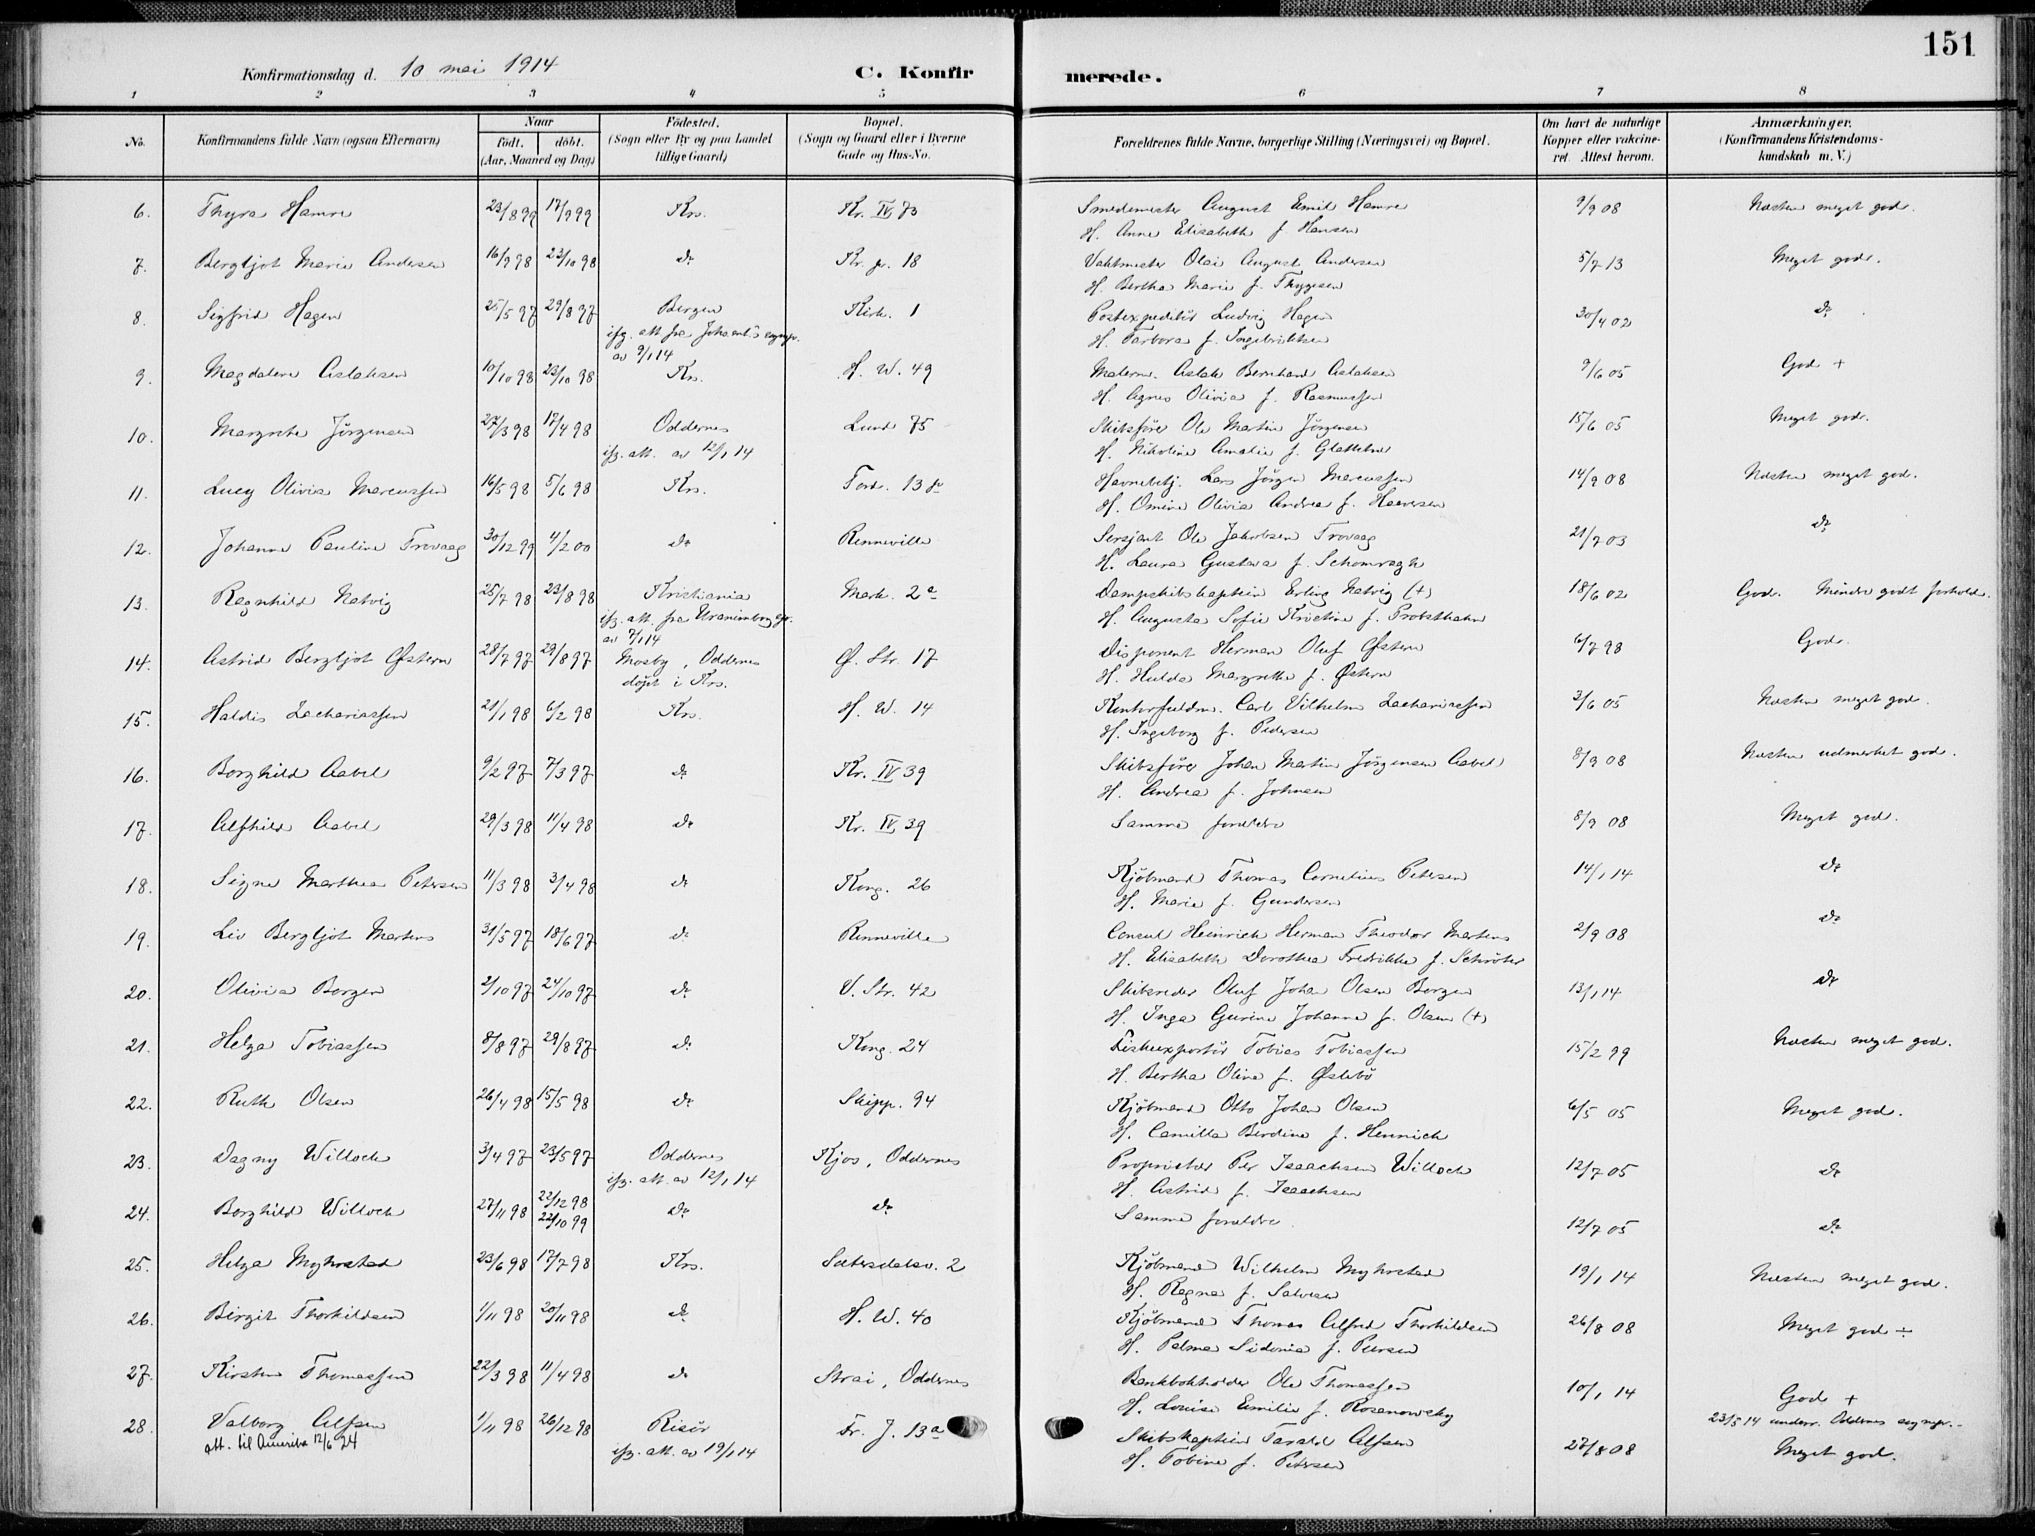 151
Konfirmationsdag d. 10 mai 1914
C. Konfirmerede.
1 2 3 4 5 6 7 8
No. Konfirmandens fulde Navn (ogsaa Efternavn) Naar født. døbt. (Aar, Maaned og Dag) Fødested. (Sogn eller By og paa Landet tillige Gaard) Bopæl. (Sogn og Gaard eller i Byerne Gade og Hus-No. Forældrenes fulde Navne, borgerlige Stilling (Næringsvei) og Bopæl. Om havt de naturlige Kopper eller vakcineret. Attest herom. Anmærkninger. (Konfirmandens Kristendomskundskab m. V.)
6. Thyra Hamre 23/8 99 17/9 99 Krs. Kr. IV 73 Smedemester August Emil Hamre 9/9 08 Næsten meget god.
H. Anne Elisabeth f. Hansen
7. Bergljot Marie Andersen 16/9 98 23/10 98 do Kr. pr. 18 Vaktmester Olai August Andersen 5/7 13 Meget god.
H. Bertha Marie f. Thygesen
8. Sigfrid Hagen 25/5 97 29/8 97 Bergen Kirk. 1 Postexpeditør Ludvig Hagen 30/4 02 do
ifg. att. fra Johannes sognpr. H. Barbara f. Ingebriktsen
av 9/1 14
9. Magdalene Aslaksen 10/10 98 23/10 98 Krs. H. W. 49 Malerm. Aslak Bernhard Aslaksen 9/6 05 God +
H. Agnes Olivia f. Rasmussen
10. Margrete Jørgensen 27/3 98 17/4 98 Oddernes Lund 75 Skibsfører Ole Martin Jørgensen 15/6 05 Meget god.
ifg. att. av 12/1 14 H. Nikoline Amalie f. Glattetre
11. Lucy Olivia Marcussen 16/5 98 5/6 98 Krs. Tord. 13 Havnebetj. Lars Jørgen Marcussen 14/9 08 Næsten meget god.
H. Omine Olivia Andrea f. Haaversen
12. Johanne Pauline Trovaag 30/12 99 4/2 00 do Rinneville Sersjant Ole Jakobsen Trovaag 21/7 03 do
H. Laura Gustava f. Schomragh
13. Ragnhild Natvig 25/7 98 23/8 98 Kristiania Mark. 2a Dampskibskaptein Erling Natvig (+) 18/6 02 God. Mindre godt forhold.
ifg. att. fra Uranienborg spr. H. Augusta Sofie Kristine f. Probsthahn
av 7/1 14
14. Astrid Bergljot Østern 28/7 97 29/8 97 Mosby, Oddernes Ø. Str. 17 Disponent Herman Oluf Østern 6/7 98 God.
døpt i Krs. H. Hulda Margrethe f. Østern
15. Haldis Zachariassen 21/1 98 6/2 98 Krs. H. W. 14 Kontorfuldm. Carl Vilhelm Zachariassen 3/6 05 Næsten meget god.
H. Ingeborg f. Pedersen
16. Borghild Aabel 9/2 97 7/3 97 do Kr. IV 39 Skibsfører Johan Martin Jørgensen Aabel 8/9 08 Næsten udmerket god.
H. Andrea f. Johnsen
17. Alfhild Aabel 29/3 98 11/4 98 do Kr. IV 39 Samme forældre 8/9 08 Meget god.
18. Signe Marthea Petersen 11/3 98 3/4 98 do Kong. 26 Kjøbmand Thomas Cornelius Petersen 14/1 14 do
H. Marie f. Gundersen
19. Liv Bergljot Martens 31/5 97 18/6 97 do Rinneville Consul Heinrich Herman Theodor Martens 2/9 08 do
H. Elisabeth Dorothea Fredrikke f. Schrøter
20. Olivia Borgen 2/10 97 24/10 97 do V. Str. 42 Skibsreder Oluf Johan Olsen Borgen 13/1 14 do
H. Inga Gurine Johanne f. Olsen (+)
21. Helga Tobiassen 8/8 97 29/8 97 do Kong. 24 Fiskeexportør Tobias Tobiassen 15/2 99 Næsten meget god.
H. Bertha Oline f. Østebø
22. Ruth Olsen 26/4 98 15/5 98 do Skipp. 94 Kjøbmand Otto Johan Olsen 6/5 05 Meget god.
H. Camilla Berdine f. Hennich
23. Dagny Willoch 3/4 97 23/5 97 Oddernes Kjos, Oddernes Proprietær Per Isaachsen Willoch 12/7 05 do
ifg. att. av 12/1 14 H. Astrid f. Isaachsen
24. Borghild Willoch 27/11 98 22/12 98 do do Samme forældre. 12/7 05 do
22/10 99
25. Helga Myhrstad 23/6 98 17/7 98 Krs. Sætersdalsv. 2 Kjøbmand Wilhelm Myhrstad 19/1 14 Næsten meget god.
H. Ragna f. Salvesen
26. Birgit Thorkildsen 1/11 98 20/11 98 do H. W. 40 Kjøbmand Thomas Alfred Thorkildsen 26/8 08 Meget god ÷
H. Palma Sidonia f. Persen
27. Kirsten Thomassen 22/3 98 11/4 98 do Strai, Oddernes Bankbokholder Ole Thomassen 10/1 14 God +
H. Louise Emilie f. Rosanowsky 23/5 14 underr. Oddernes sognepr.
28. Valborg Alfsen 1/11 98 26/12 98 Risør Fr. J. 13a Skibskaptein Tarald Alfsen 27/8 08 Meget god.
att. til Amerika 12/6 24 ifg. att. av 19/1 14 H. Tobine f. Petersen